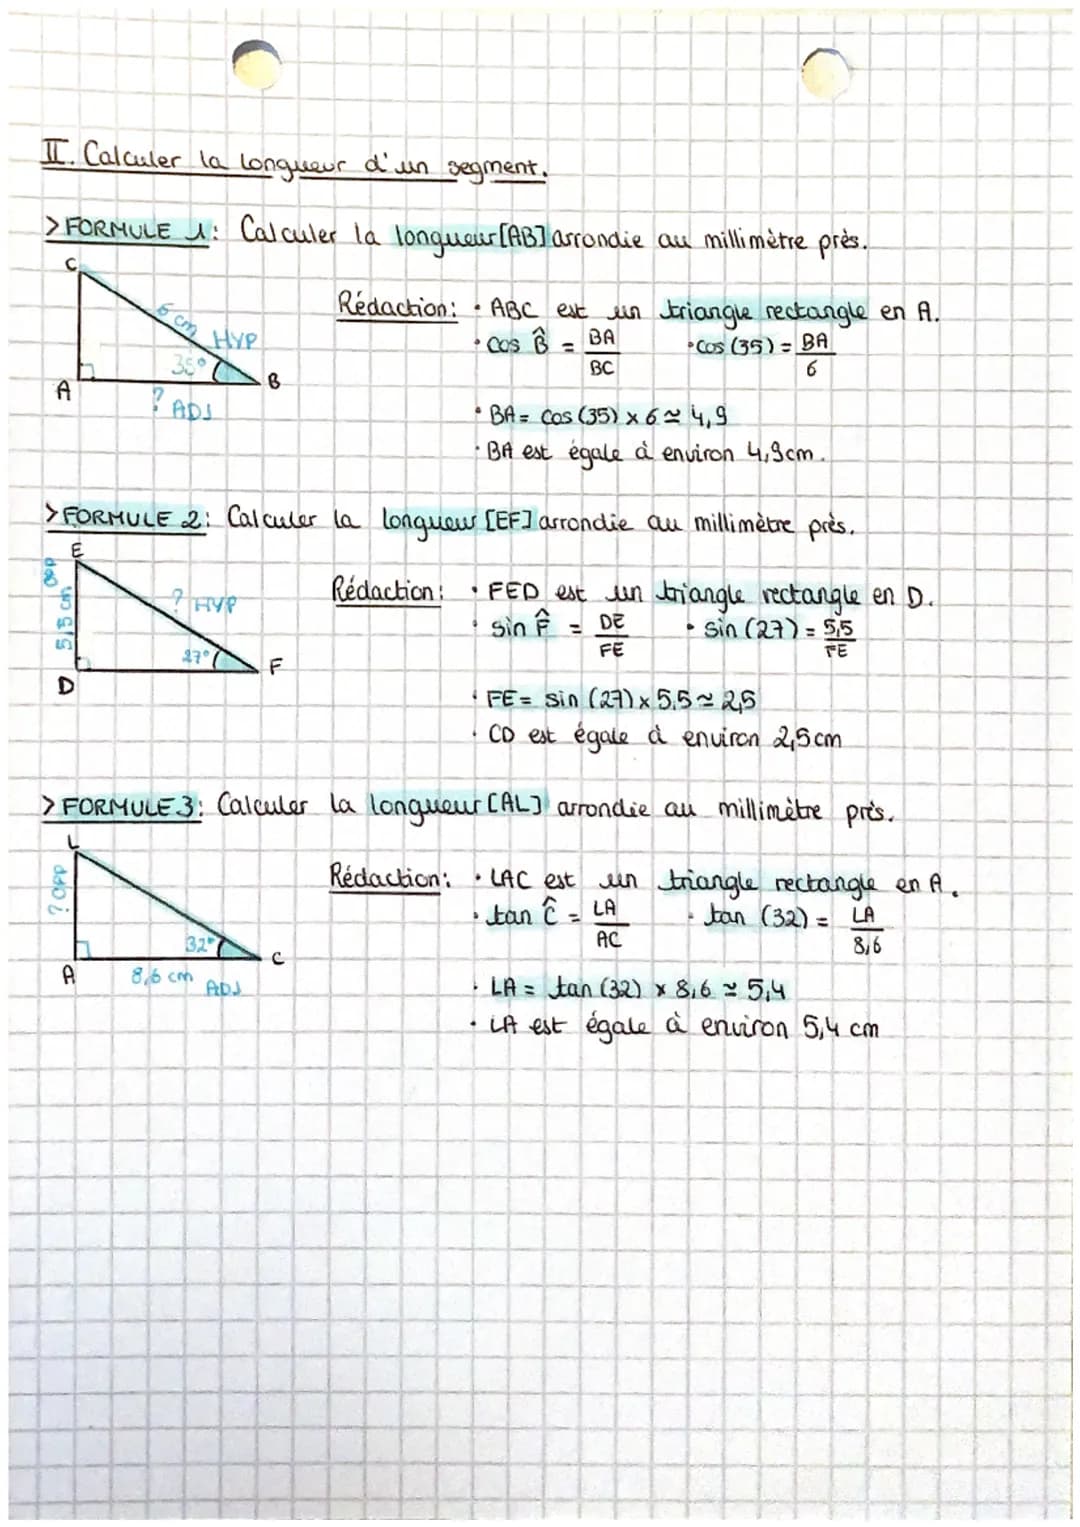 II. Calculer la longueur d'un segment.
> FORMULE 1: Calculer la longueur [AB] arrondie au millimètre près.
C
6 cm HYP
35°
A
B
? ADJ
Rédaction: • ABC est un triangle rectangle en A.
• cos B̂ = BA/BC • cos (35) = BA/6
• BA = cos (35) x 6 ≃ 4,9
• BA est égale à environ 4,9cm.
> FORMULE 2: Calculer la longueur [EF] arrondie au millimètre près.
E
5,5 cm OPP
? HYP
27°
F
D
Rédaction: • FED est un triangle rectangle en D.
• sin F̂ = DE/FE • sin (27) = 5,5/FE
• FE = sin (27) x 5,5 ≃ 2,5
• CD est égale à environ 2,5cm
> FORMULE 3: Calculer la longueur [AL] arrondie au millimètre près.
L
? OPP
32°
C
A
8,6 cm ADJ
Rédaction: • LAC est un triangle rectangle en A.
• tan Ĉ = LA/AC • tan (32) = LA/8,6
• LA = tan (32) x 8,6 ≃ 5,4
• LA est égale à environ 5,4 cm